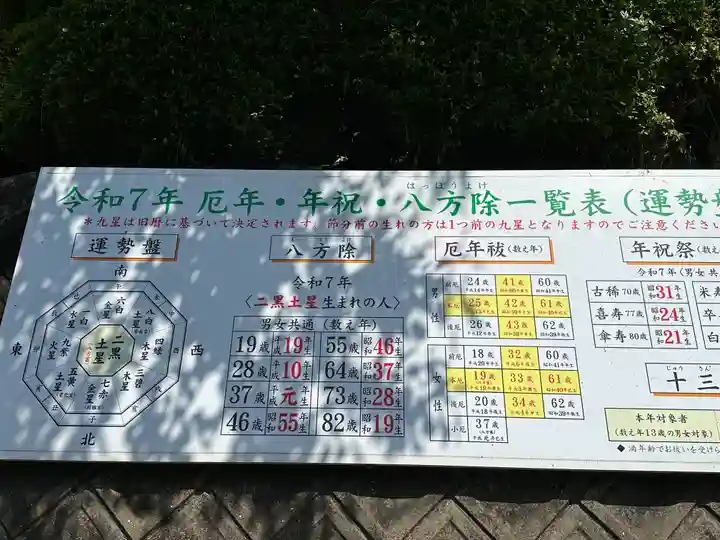 はっぽうよけ
令和7年 厄年・年祝・八方除一覧表(運勢
＊九星は旧暦に基づいて決定されます。節分前の生れの方は1つ前の九星となりますのでご注意くださ
運勢盤
南
東
西
北
二黒
土星
六白
金星
八白
土星
四緑
木星
三碧
木星
七赤
金星
五黄
土星
九紫
火星
水星
八方除
令和7年
〈二黒土星生まれの人〉
男女共通(数え年)
19歳 平成19年生 55歳 昭和46年生
28歳 平成10年生 64歳 昭和37年生
37歳 平成元年生 73歳 昭和28年生
46歳 昭和55年生 82歳 昭和19年生
厄年祓(数え年)
男性
前厄 24歳 41歳 60歳
本厄 25歳 42歳 61歳
後厄 26歳 43歳 62歳
女性
前厄 18歳 32歳 60歳
本厄 19歳 33歳 61歳
後厄 20歳 34歳 62歳
小厄 37歳
年祝祭(数え
令和7年(男女共
古稀70歳 昭和31年生
喜寿77歳 昭和24年生
傘寿80歳 昭和21年生
米寿
卒
じゅう さん
十三
本年対象者
(数え年13歳の男女対象)
◆満年齢でお祓いを受け